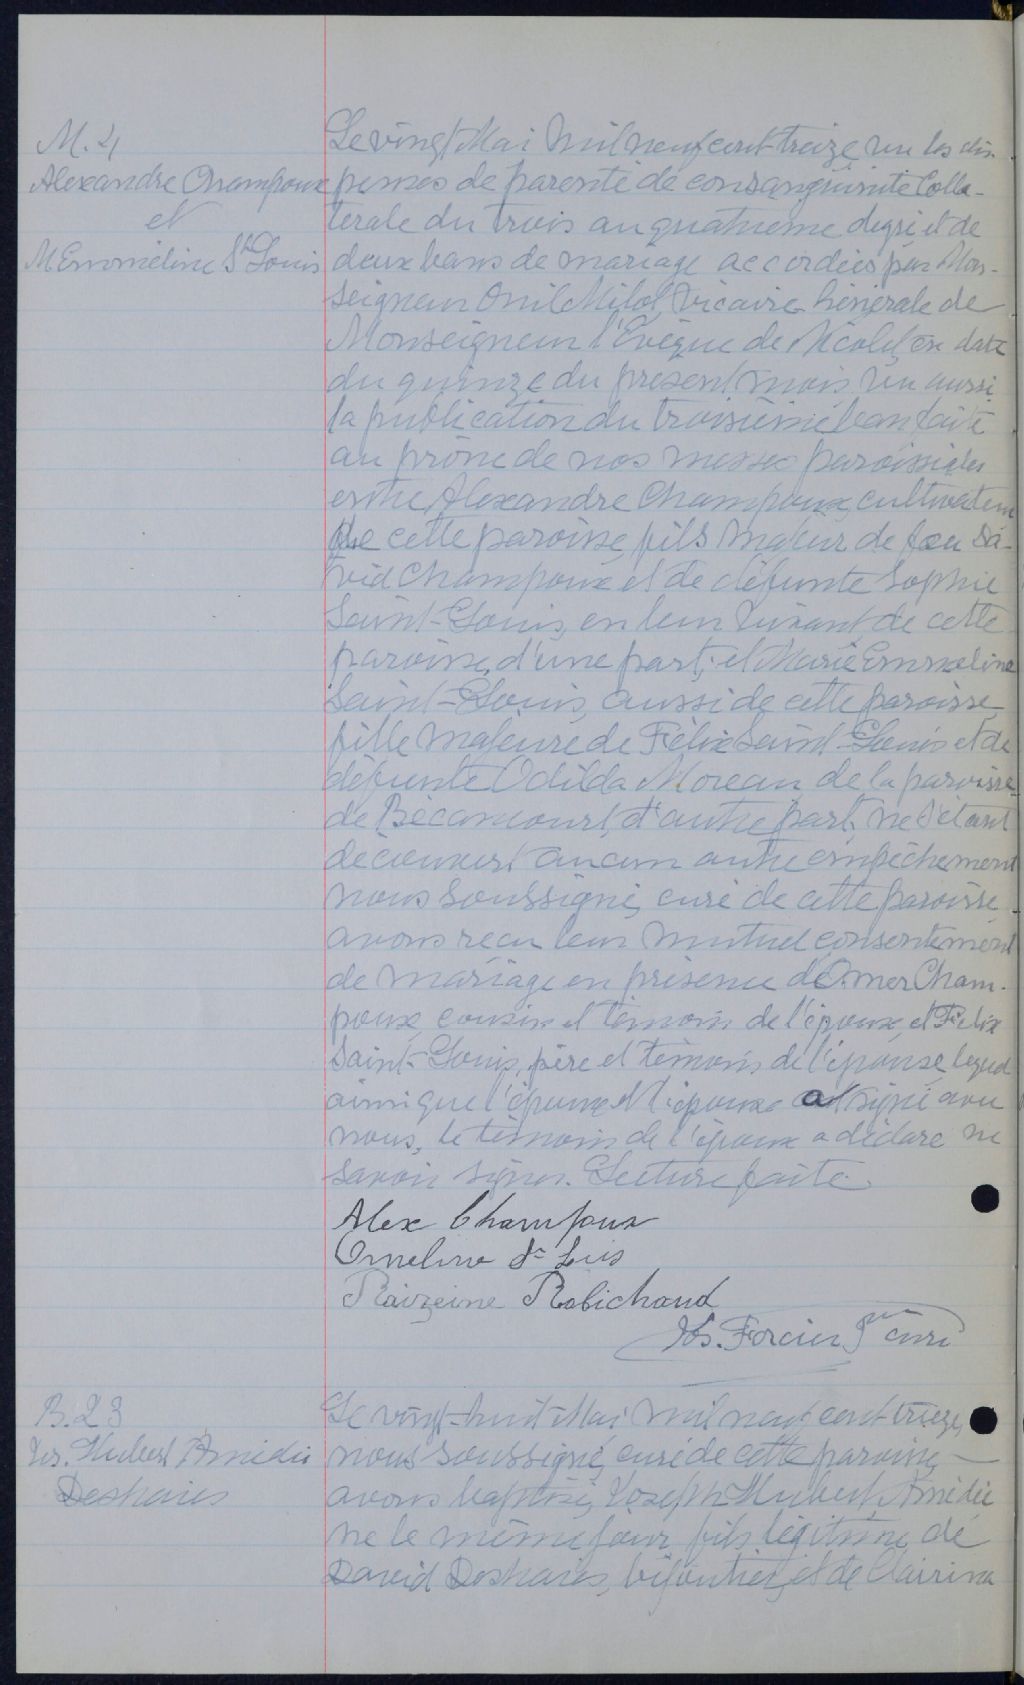 M. 4
Alexandre Champoux
et
M Emméline St Louis
Le vingt Mai mil neuf cent treize vu les dis-
penses de parenté de consanguinité Colla-
térale du trois au quatrième degré et de
deux bans de mariage accordées par Mon-
seigneur Onil Milot, Vicaire Générale de
Monseigneur l'Evêque de Nicolet, en date
du quinze du présent mois vu aussi
la publication du troisième ban faite
au prône de nos messes paroissiales
entre Alexandre Champoux, cultivateur
de cette paroisse, fils majeur de feu Da-
vid Champoux et de défunte Sophie
Saint-Louis, en leur vivant de cette
paroisse, d'une part; et Marie Emmeline
Saint-Louis, aussi de cette paroisse,
fille majeure de Félix Saint-Louis et de
défunte Odilda Moreau, de la paroisse
de Bécancourt, d'autre part; ne s'étant
découvert aucun autre empêchement
nous soussigné, curé de cette paroisse
avons reçu leur mutuel consentement
de mariage en présence de Omer Cham-
poux, cousin et témoin de l'époux et Félix
Saint-Louis, père et témoin de l'épouse lequel
ainsi que l'épouse et l'époux a signé avec
nous, le témoin de l'époux a déclaré ne
savoir signer. Lecture faite.
Alex Champoux
Emelina St Luis
Robichaud
Jos. Forcier Ptre curé
B. 23
Jos. Hubert Amédée
Deshaies
Le vingt-huit Mai mil neuf cent treize,
nous soussigné, curé de cette paroisse,
avons baptisé, Joseph Hubert Amédée
né le même jour, fils légitime de
David Deshaies, bijoutier, et de Clairina